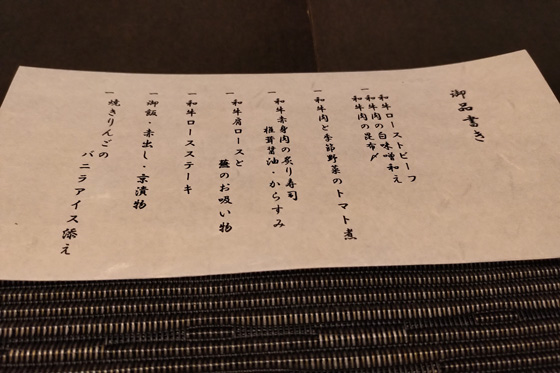 御品書き
一 和牛ローストビーフ
和牛肉の白味噌和え
和牛肉の昆布〆
一 和牛肉と季節野菜のトマト煮
一 和牛赤身肉の炙り寿司
椎茸醤油・からすみ
一 和牛肩ロースと
蕪のお吸い物
一 和牛ロースステーキ
一 御飯・赤出し・京漬物
一 焼きりんごの
バニラアイス添え